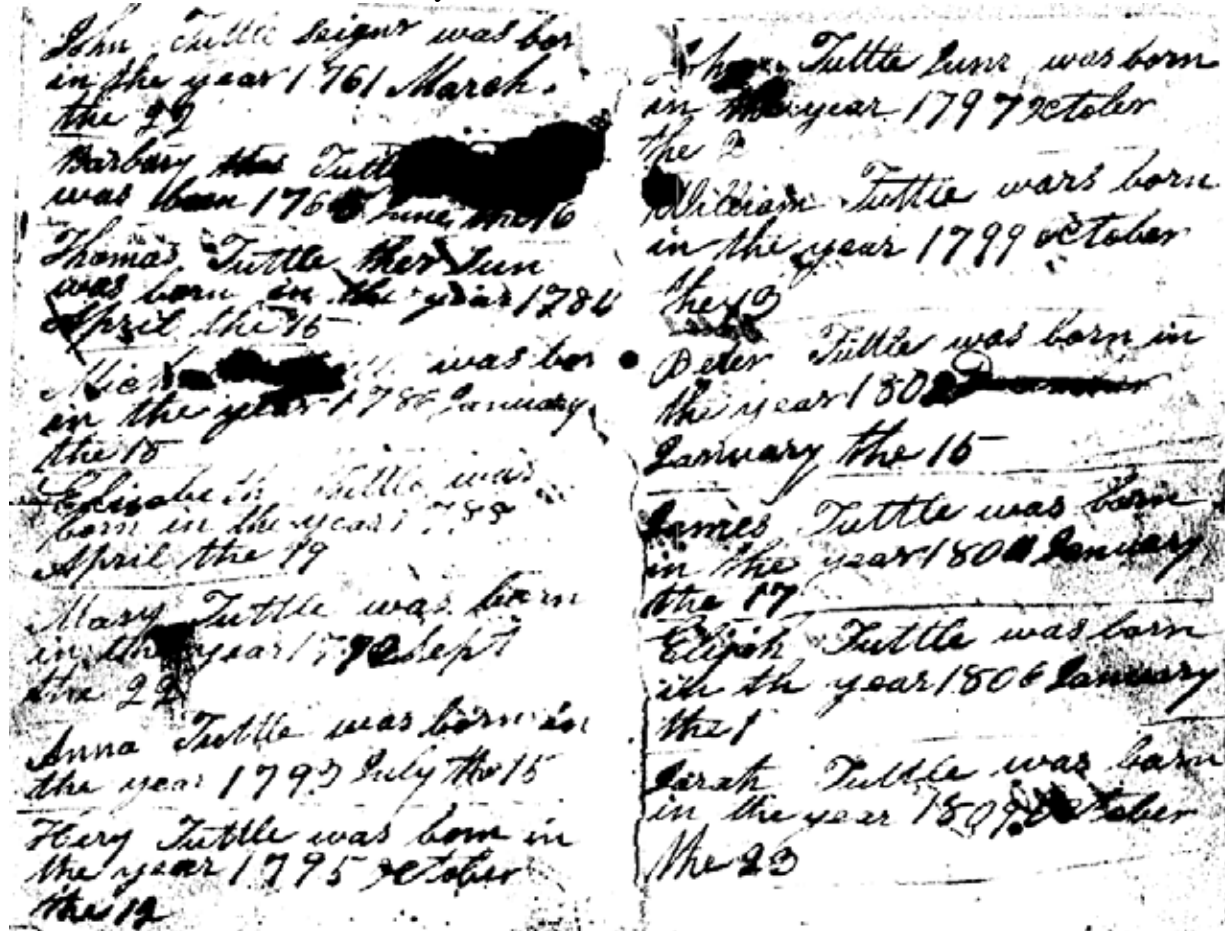 John Tuttle seignr was bor
in the year 1761 March.
the 22
Barbary Tuttle
was born 176 June the 16
Thomas Tuttle ther Sun
was born in the year 1784
April the 15
was bor
in the year 1786 January
the 15
Elisabeth Tuttle was
born in the year 1788
April the 19
Mary Tuttle was born
in the year 1790 Sept
the 22
Anna Tuttle was born in
the year 1793 July the 15
Hery Tuttle was born in
the year 1795 October
the 12
John Tuttle Junr was born
in the year 1797 October
the 2
William Tuttle wars born
in the year 1799 october
the 13
Peter Tuttle was born in
the year 1802
January the 15
James Tuttle was born
in the year 1804 January
the 17
Elijah Tuttle was born
in th year 1806 January
the 1
Sarah Tuttle was born
in the year 1809 October
the 23